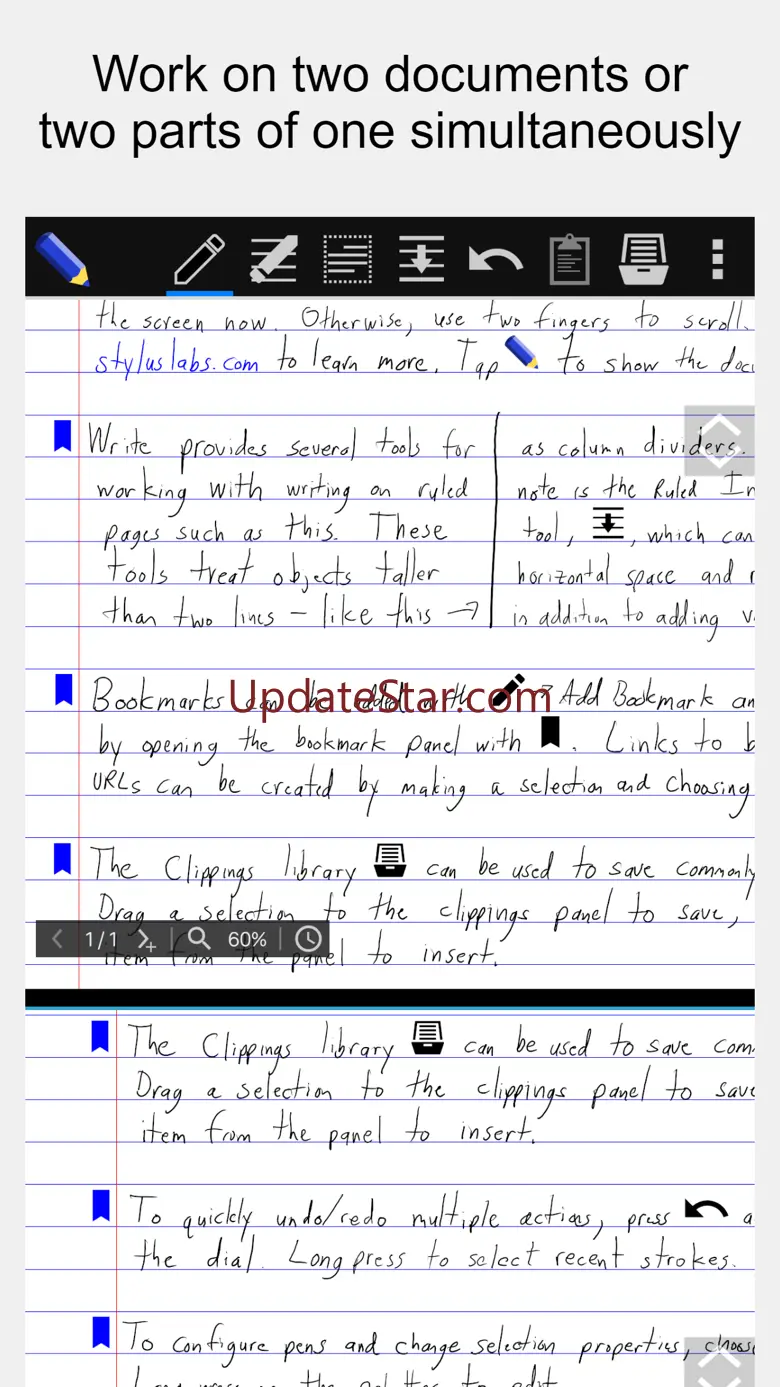 Work on two documents or
two parts of one simultaneously
the screen now. Otherwise, use two fingers to scroll.
styluslabs.com to learn more. Tap to show the docu
Write provides several tools for
working with writing on ruled
pages such as this. These
tools treat objects taller
than two lines – like this →
as column dividers.
note is the Ruled In
tool, , which can
horizontal space and
in addition to adding v
Bookmarks can be added with the > Add Bookmark an
UpdateStar.com
by opening the bookmark panel with . Links to b
URLs can be created by making a selection and choosing
The Clippings library can be used to save commonly
Drag a selection to the clippings panel to save,
item from the panel to insert.
1/1 60%
The Clippings library can be used to save com
Drag a selection to the clippings panel to save
item from the panel to insert.
To quickly undo/redo multiple actions, press a
the dial. Long press to select recent strokes.
To configure pens and change selection properties, choose
Long press on the palettes to edit